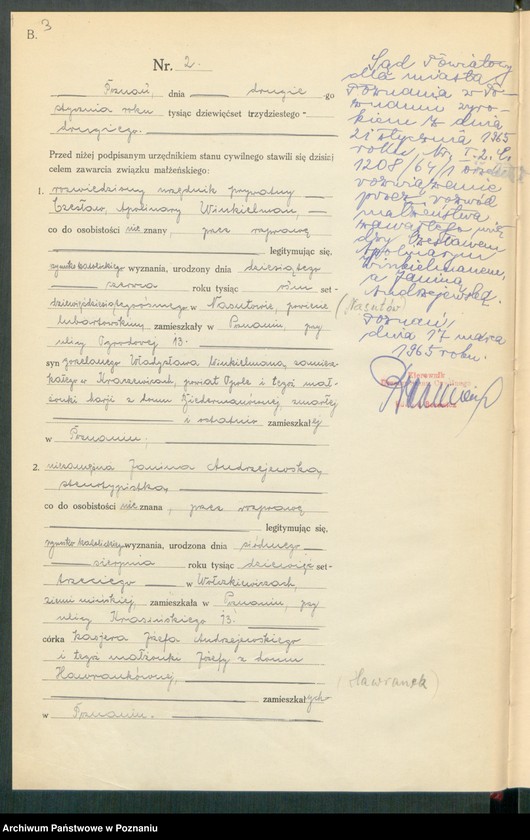 B. 3
Nr. 2.
Poznań, dnia drugie go
stycznia roku tysiąc dziewięćset trzydziestego
drugiego.
Przed niżej podpisanym urzędnikiem stanu cywilnego stawili się dzisiaj
celem zawarcia związku małżeńskiego:
1. rozwiedziony urzędnik prywatny
Czesław, Apolinary Winkielman,
co do osobistości nie znany, przez rozprawę
legitymując się,
rzymsko katolickiego wyznania, urodzony dnia dziesiątego
czerwca roku tysiąc ośm set
dziewięćdziesiątegoósmego w Nasutowie, powiecie
lubartowskim, zamieszkały w Poznaniu, przy
ulicy Ogrodowej 13.
syn gorzelanego Władysława Winkielmana, zamiesz-
kałego w Kraszewicach, powiat Opole i tegoż mał-
żonki Marji z domu zmarłej
i ostatnio zamieszkałej
w Poznaniu;
2. niezamężna Janina Andrzejewska,
stenotypistka,
co do osobistości nie znana, przez rozprawę
legitymując się,
rzymsko katolickiego wyznania, urodzona dnia siódmego
sierpnia roku tysiąc dziewięć set-
trzeciego w
ziemi mińskiej, zamieszkała w Poznaniu, przy
ulicy Krasińskiego 13.
córka kasjera Józefa Andrzejewskiego
i tegoż małżonki Józefy z domu
Hawrankównej,
zamieszkałych
w Poznaniu.
Sąd Powiatowy
dla miasta
Poznania w Po-
znaniu wyro-
kiem z dnia
21 stycznia 1965
roku Nr. I. 2. C.
1208/64/1 orzekł
rozwiązanie
przez rozwód
małżeństwa
zawartego mię-
dzy Czesławem
Apolinarym
Winkielmanem,
a Janiną
Andrzejewską.
(Nasutów)
Poznań,
dnia 17 marca
1965 roku.
Kierownik
(Hawranek)
Archiwum Państwowe w Poznaniu